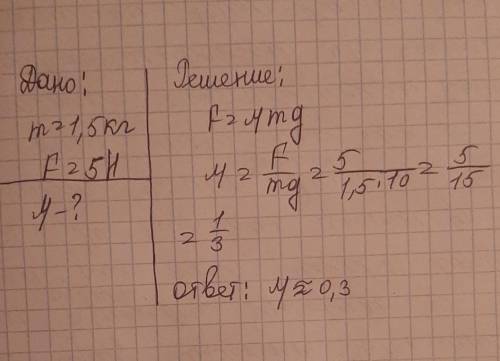 Дано:
m=1,5кг
F=5Н
μ-?
Решение:
F=μmg
μ = F/mg = 5/1,5·10 = 5/15
= 1/3
ответ: μ≈0,3